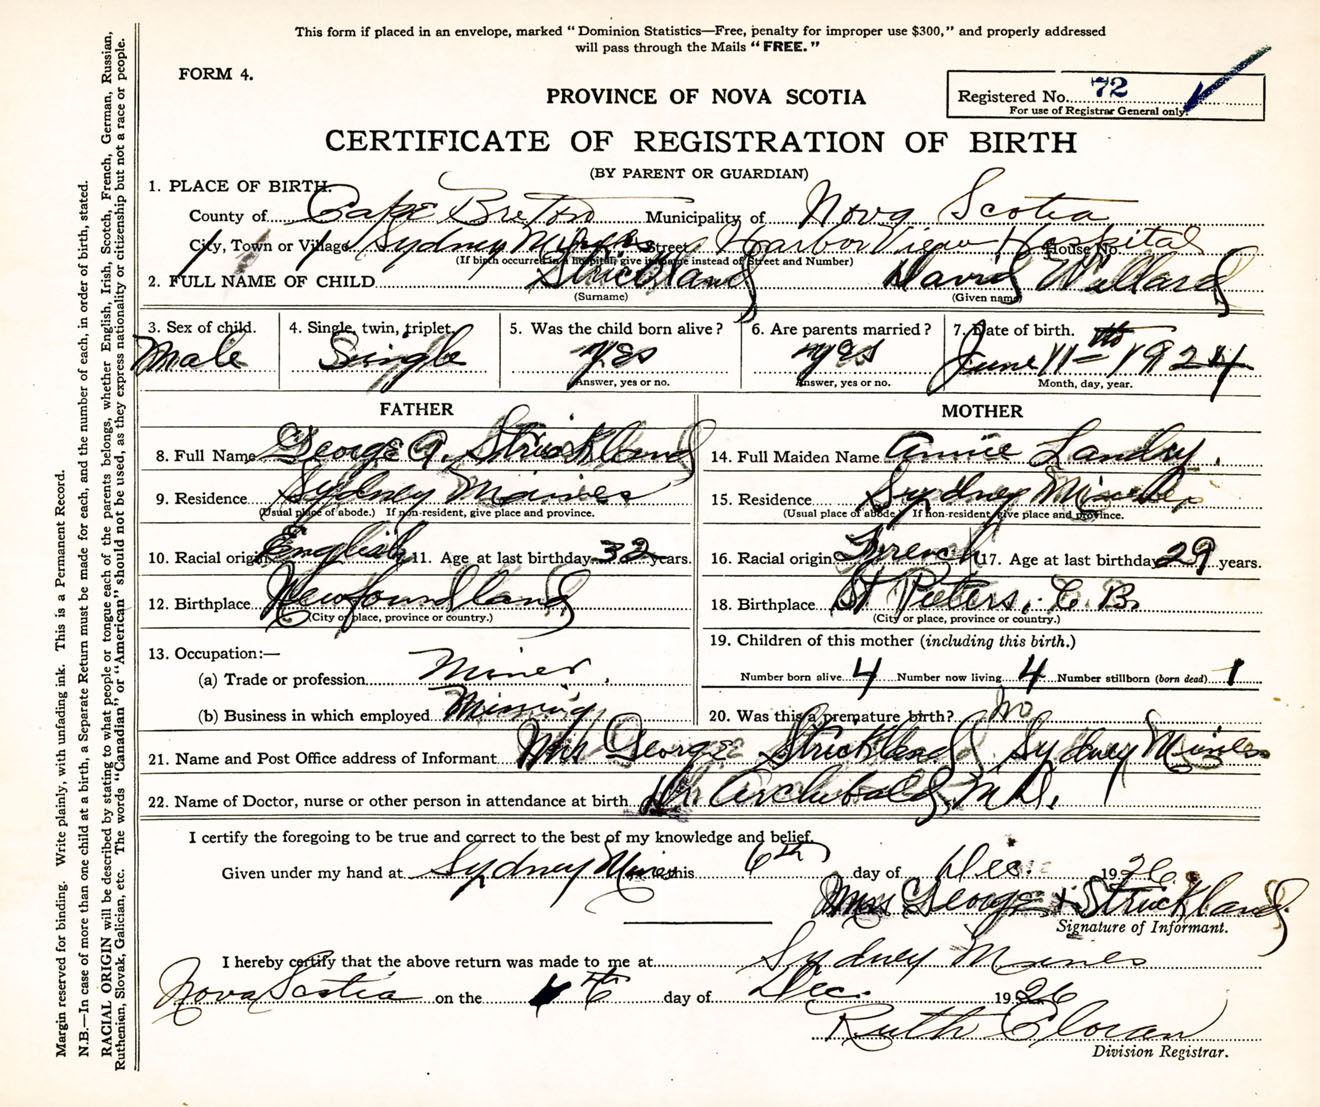 This form if placed in an envelope, marked "Dominion Statistics—Free, penalty for improper use $300," and properly addressed
will pass through the Mails "FREE."
FORM 4.
Registered No. 72
For use of Registrar General only.
PROVINCE OF NOVA SCOTIA
CERTIFICATE OF REGISTRATION OF BIRTH
(BY PARENT OR GUARDIAN)
1. PLACE OF BIRTH.
County of Cape Breton Municipality of Nova Scotia
City, Town or Village Sydney Mines Street Harbor View Hospital House No.
(If birth occurred in a hospital, give its name instead of Street and Number)
2. FULL NAME OF CHILD Strickland David Willard
(Surname) (Given name)
3. Sex of child. Male
4. Single, twin, triplet. Single
5. Was the child born alive? yes
Answer, yes or no.
6. Are parents married? yes
Answer, yes or no.
7. Date of birth. June 11th 1924
Month, day, year.
FATHER
8. Full Name George A. Strickland
9. Residence Sydney Mines
(Usual place of abode.) If non-resident, give place and province.
10. Racial origin English 11. Age at last birthday 32 years.
12. Birthplace Newfoundland
(City or place, province or country.)
13. Occupation:—
(a) Trade or profession Miner
(b) Business in which employed Mining
MOTHER
14. Full Maiden Name Annie Landry.
15. Residence Sydney Mines
(Usual place of abode.) If non-resident, give place and province.
16. Racial origin French 17. Age at last birthday 29 years.
18. Birthplace St Peters, C. B.
(City or place, province or country.)
19. Children of this mother (including this birth.)
Number born alive 4 Number now living 4 Number stillborn (born dead) 1
20. Was this a premature birth? No
21. Name and Post Office address of Informant Mrs George Strickland Sydney Mines
22. Name of Doctor, nurse or other person in attendance at birth Dr Archibald, M.D.
I certify the foregoing to be true and correct to the best of my knowledge and belief.
Given under my hand at Sydney Mines this 6th day of Dec. 1926
George Strickland
Signature of Informant.
I hereby certify that the above return was made to me at Sydney Mines
Nova Scotia on the day of Dec. 1926
Ruth
Division Registrar.
Margin reserved for binding. Write plainly, with unfading ink. This is a Permanent Record.
N.B.—In case of more than one child at a birth, a Separate Return must be made for each, and the number of each, in order of birth, stated.
RACIAL ORIGIN will be described by stating to what people or tongue each of the parents belongs, whether English, Irish, Scotch, French, German, Russian,
Ruthenian, Slovak, Galician, etc. The words "Canadian" or "American" should not be used, as they express nationality or citizenship but not a race or people.